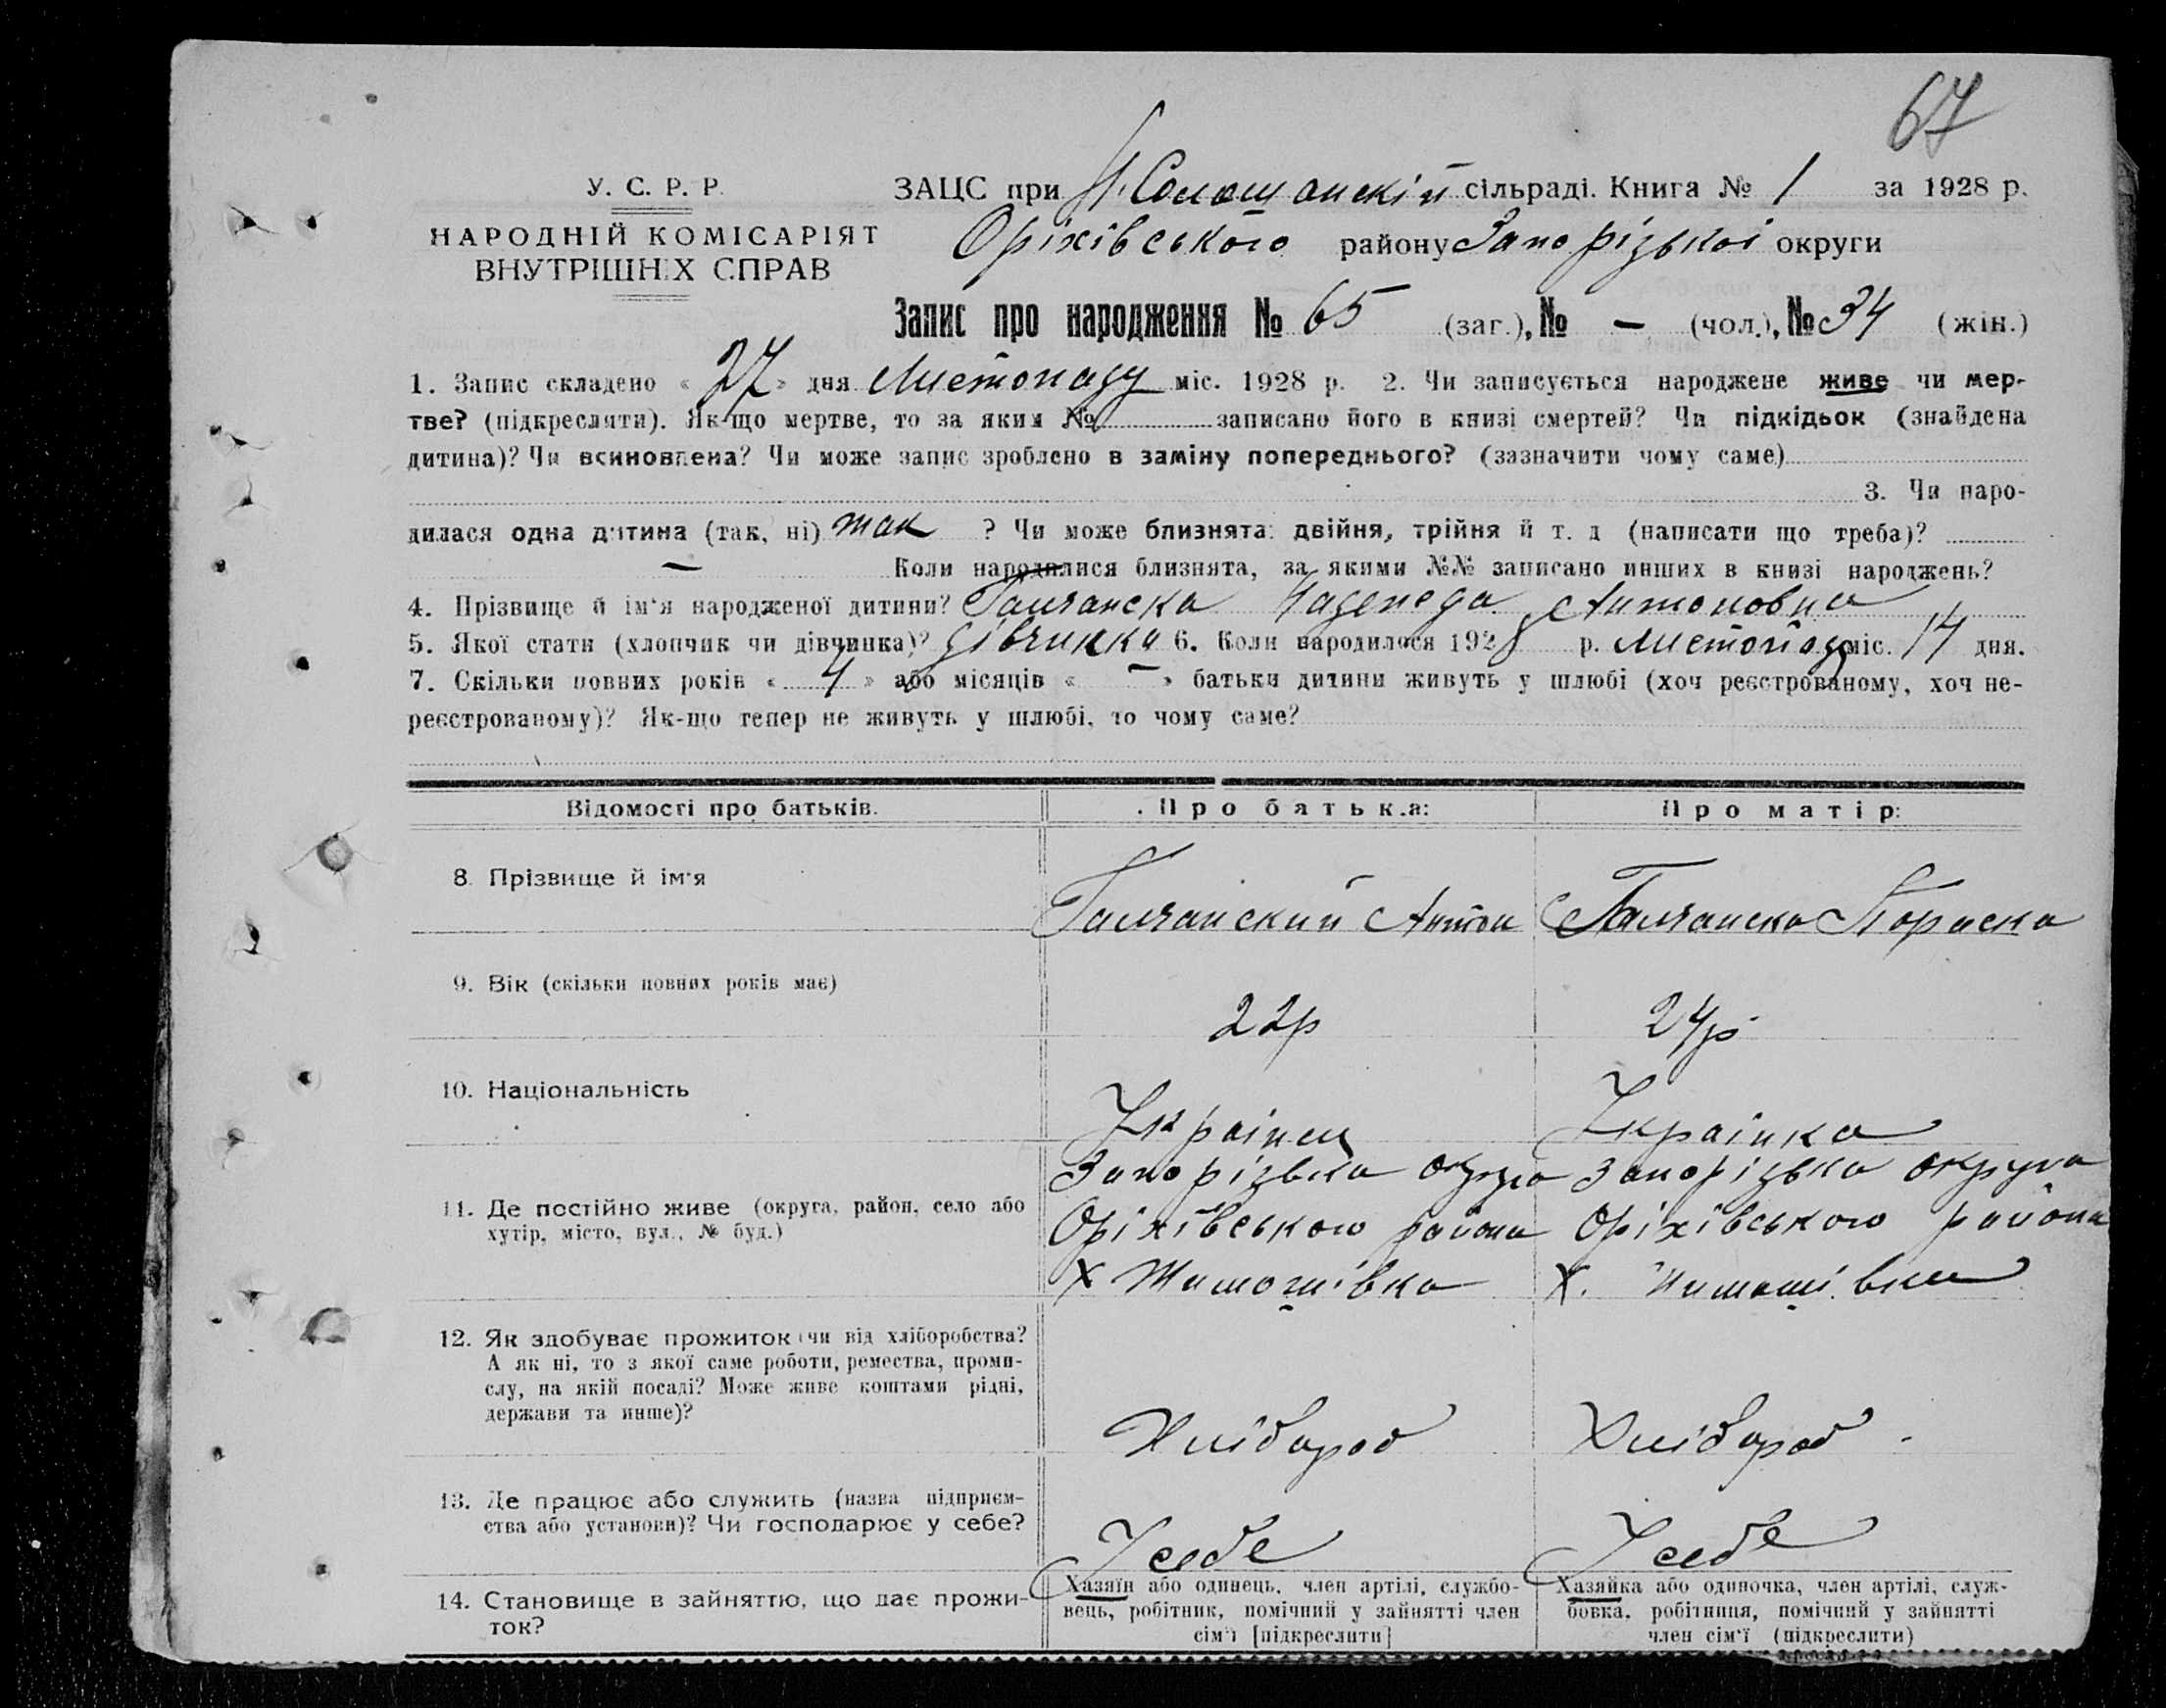 67
У. С. Р. Р.
НАРОДНІЙ КОМІСАРІЯТ
ВНУТРІШНІХ СПРАВ
ЗАЦС при сільраді. Книга № 1 за 1928 р.
Оріхівського району Запорізької округи
Запис про народження № 65 (заг.), № — (чол.), № 34 (жін.)
1. Запис складено « 27 » дня Листопаду міс. 1928 р. 2. Чи записується народжене живе чи мер-
тве? (підкреслити). Як-що мертве, то за яким № записано його в книзі смертей? Чи підкідьок (знайдена
дитина)? Чи всиновлена? Чи може запис зроблено в заміну попереднього? (зазначити чому саме)
3. Чи наро-
дилася одна дитина (так, ні) так ? Чи може близнята: двійня, трійня й т. д (написати що треба)?
— Коли народилися близнята, за якими №№ записано инших в книзі народжень?
4. Прізвище й ім'я народженої дитини? Галчанска Надежда Антоновна
5. Якої стати (хлопчик чи дівчинка)? дівчинка 6. Коли народилося 1928 р. листопаду міс. 14 дня.
7. Скільки повних років « 4 » або місяців « — » батьки дитини живуть у шлюбі (хоч реєстрованому, хоч не-
реєстрованому)? Як-що тепер не живуть у шлюбі, то чому саме?
Відомості про батьків. Про батька: Про матір:
8. Прізвище й ім'я Галчанский Антон Галчанска Параска
9. Вік (скільки повних років має) 22р 24р
10. Національність Українец Українка
11. Де постійно живе (округа, район, село або
хутір, місто, вул., № буд.)
Запорізька округа Запорізька округа
Оріхівського района Оріхівського района
х х.
12. Як здобуває прожиток (чи від хліборобства?
А як ні, то з якої саме роботи, ремества, проми-
слу, на якій посаді? Може живе коштами рідні,
держави та инше)?
Хлібороб Хлібороб
13. Де працює або служить (назва підприєм-
ства або установи)? Чи господарює у себе?
У себе У себе
14. Становище в зайняттю, що дає прожи-
ток?
Хазяїн або одинець, член артілі, службо-
вець, робітник, помічний у зайнятті член
сім'ї [підкреслити]
Хазяйка або одиночка, член артілі, служ-
бовка, робітниця, помічний у зайнятті
член сім'ї (підкреслити)